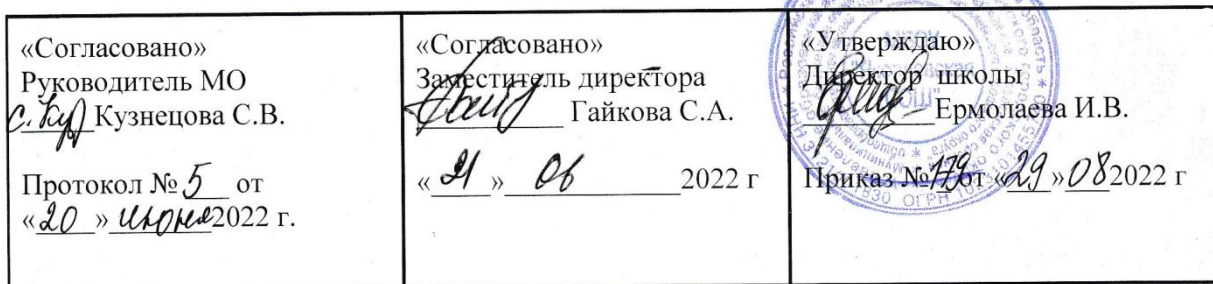 «Согласовано»
Руководитель МО
Кузнецова С.В.
Протокол № 5 от
«20» июня 2022 г.
«Согласовано»
Заместитель директора
Гайкова С.А.
«21» 06 2022 г
«Утверждаю»
Директор школы
Ермолаева И.В.
Приказ № 179 от «29» 08 2022 г